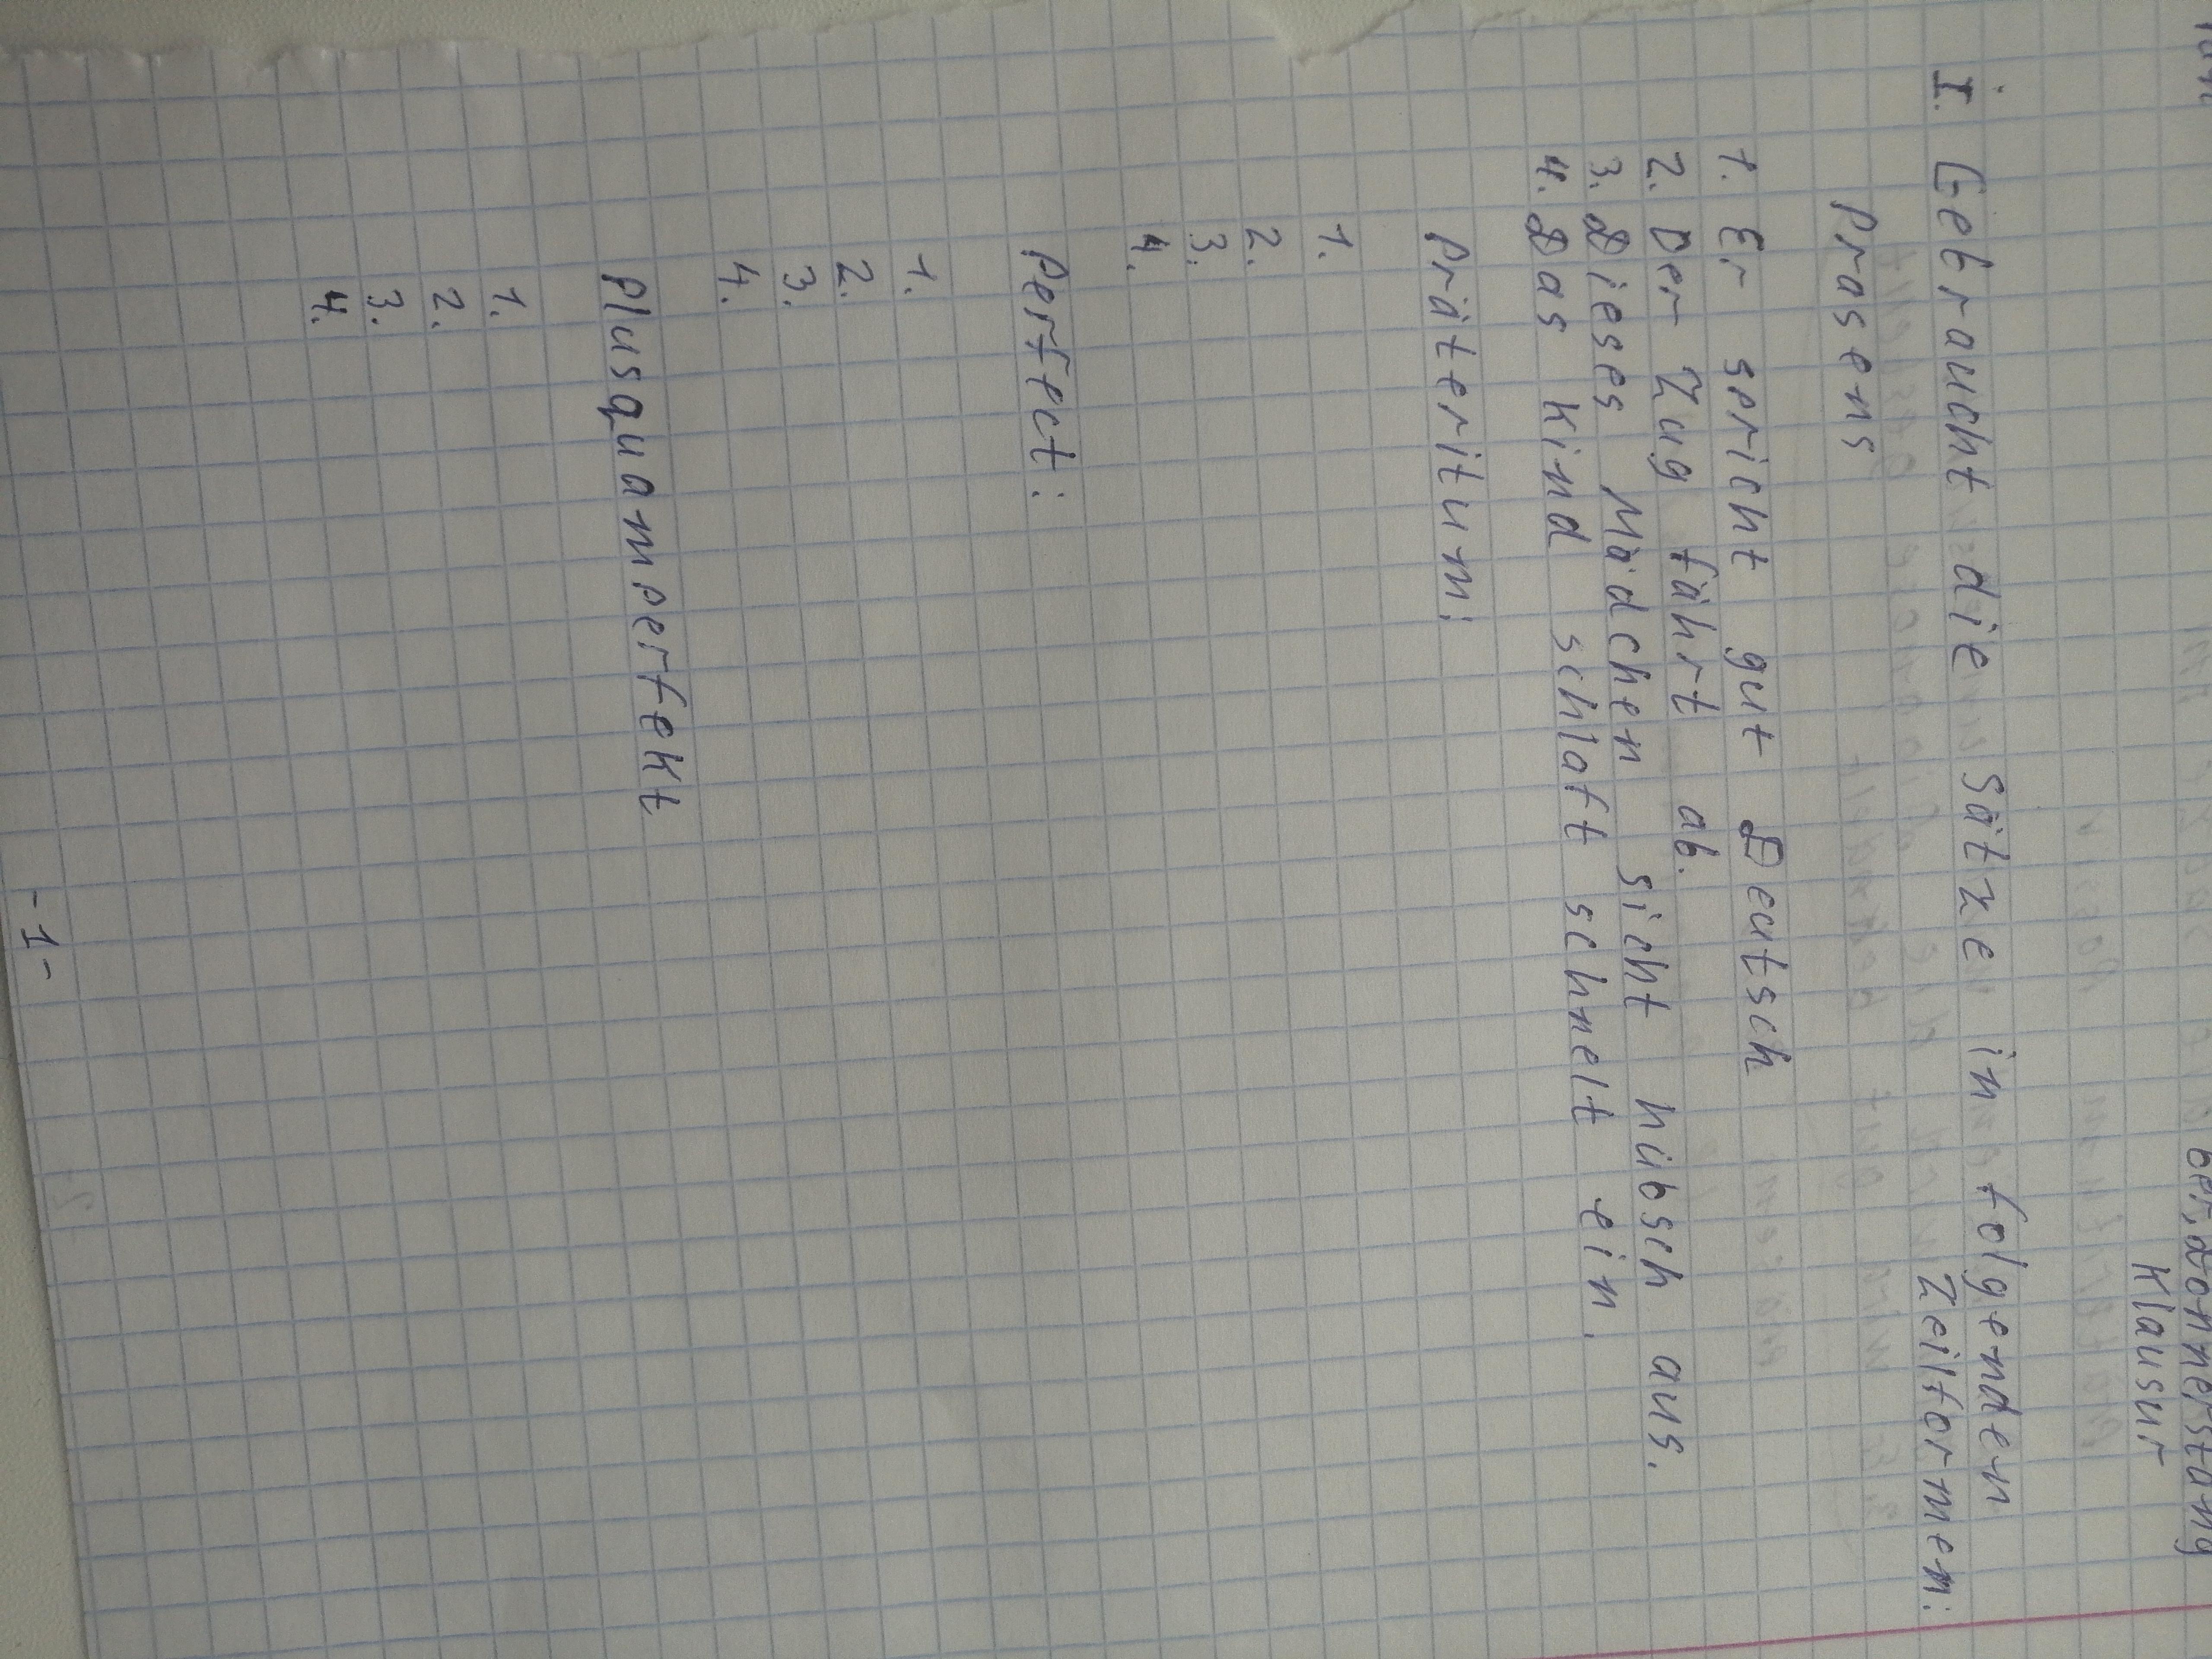 Klausur
I. Gebraucht die Sätze in folgenden
Zeilformen:
Präsens
1. Er spricht gut Deutsch
2. Der Zug fährt ab.
3. Dieses Mädchen sicht hübsch aus.
4. Das Kind schlaft schnelt ein.
Präteritum:
1.
2.
3.
4.
Perfect:
1.
2.
3.
4.
Plusquamperfekt
1.
2.
3.
4.
-1-